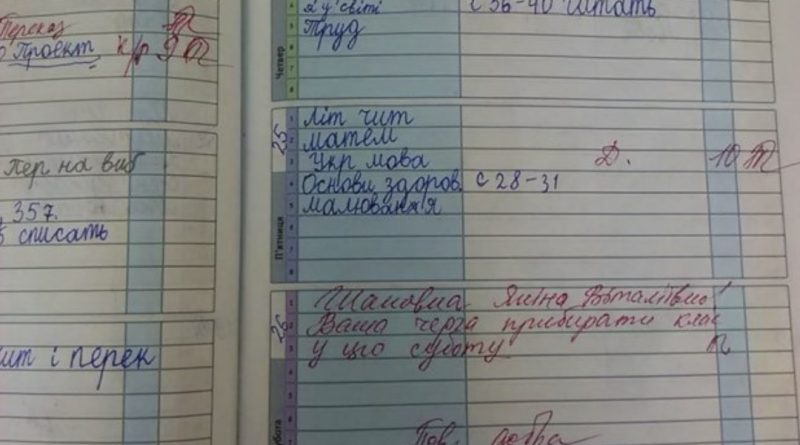 Переказ
Проект к/р 9
Пер на виб
357.
списать
і перек
4 я у світі с 36-40 читать
5 Труд
6
7
8
Четвер
25
1 Літ чит
2 матем
3 Укр мова Д. 10
4 Основи здоров. с 28-31
5 малювання
6
7
8
П'ятниця
26
1 Шановна Яніна Віталіївно!
2 Ваша черга прибирати клас
3 у цю суботу
4
5
6
Пов. добра